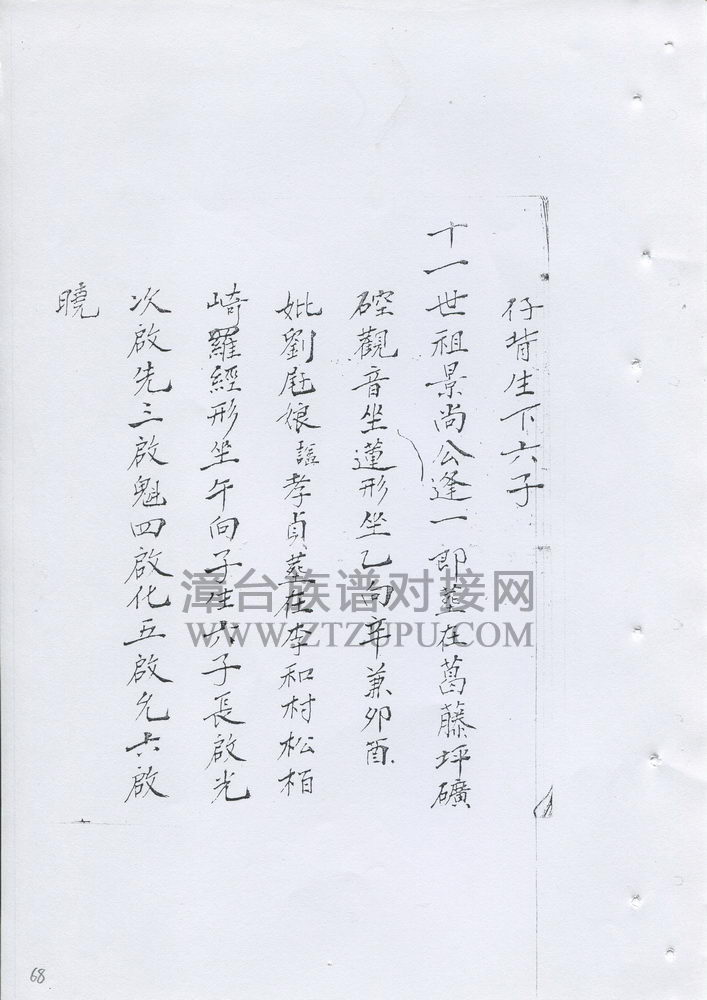 仔背生下六子
十一世祖景尚公逢一郎葬在葛藤坪礦
硿觀音坐蓮形坐乙向辛兼卯酉
妣劉娘諡孝貞葬在李和村松柏
崎羅經形坐午向子生六子長啟光
次啟先三啟魁四啟化五啟允六啟
曉
漳台族谱对接网
WWW.ZTZUPU.COM
68